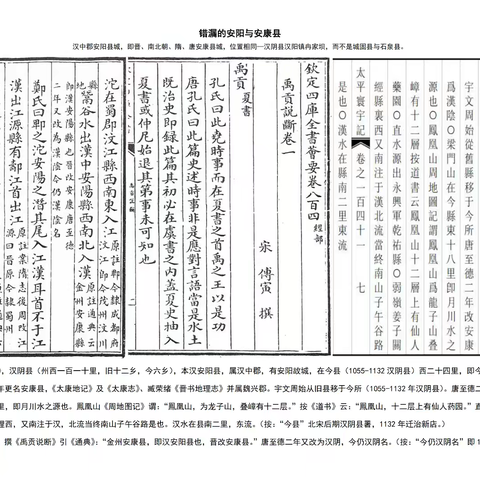 错漏的安阳与安康县
汉中郡安阳县城，即晋、南北朝、隋、唐安康县城，位置相同--汉阴县汉阳镇冉家坝，而不是城固县与石泉县。
宇文周始從舊縣移于今所唐至德二年改安康
爲漢陰○梁門山在今縣東十八里即月川水之
源也○鳳凰山周地圖記謂鳳凰山爲龍子山叠
嶂有十二層按道書云鳳凰山十二層上有仙人
藥園○直水源出永興軍乾祐縣○弱嶺姜子關
經縣裏西又南注于漢北流當終南山子午谷路
太平寰宇記 卷之一百四十一 七
是也○漢水在縣南二里東流
欽定四庫全書薈要卷八百四 經部
禹貢說斷卷一
宋 傅寅 撰
禹貢 夏書
孔氏曰此堯時事而在夏書之首禹之王以是功
唐孔氏曰此篇史述時事非是應對言語當是水土
既治史即錄此篇其初必在虞書之內蓋夏史抽入
夏書或仲尼始退其第事未可知也
二
沱在蜀郡汶江縣西南東入江
鬵谷水出漢中安陽縣西南北入漢 原註通典云金州安康縣
即漢安陽縣也晋改安康唐至德二年又改爲漢陰今仍漢陰名
鄭氏曰即之沱安陽之潛其尾入江漢耳首不于江
漢出江源縣有江首出江
汉阴县（州西一百一十里，旧十二乡，今六乡），本汉安阳县，属汉中郡，有安阳故城，在今县（1055-1132汉阴县）西二十四里，即今
年更名安康县，《太康地记》及《太康志》、臧荣绪《晋书地理志》并属魏兴郡。宇文周始从旧县移于今所（1055-1132年汉阴县）。唐至德二
里，即月川水之源也。凤凰山《周地图记》谓：“凤凰山，为龙子山，叠嶂有十二层。”按《道书》云：“凤凰山，十二层上有仙人药园。”直
西，又南注于汉，北流当终南山子午谷路是也。汉水在县南二里，东流。（按：“今县”北宋后期汉阴县署，1132年迁治新店。）
撰《禹贡说断》引《通典》：“金州安康县，即汉安阳县也，晋改安康县。”唐至德二年又改为汉阴，今仍汉阴名。（按：“今仍汉阴名”即1